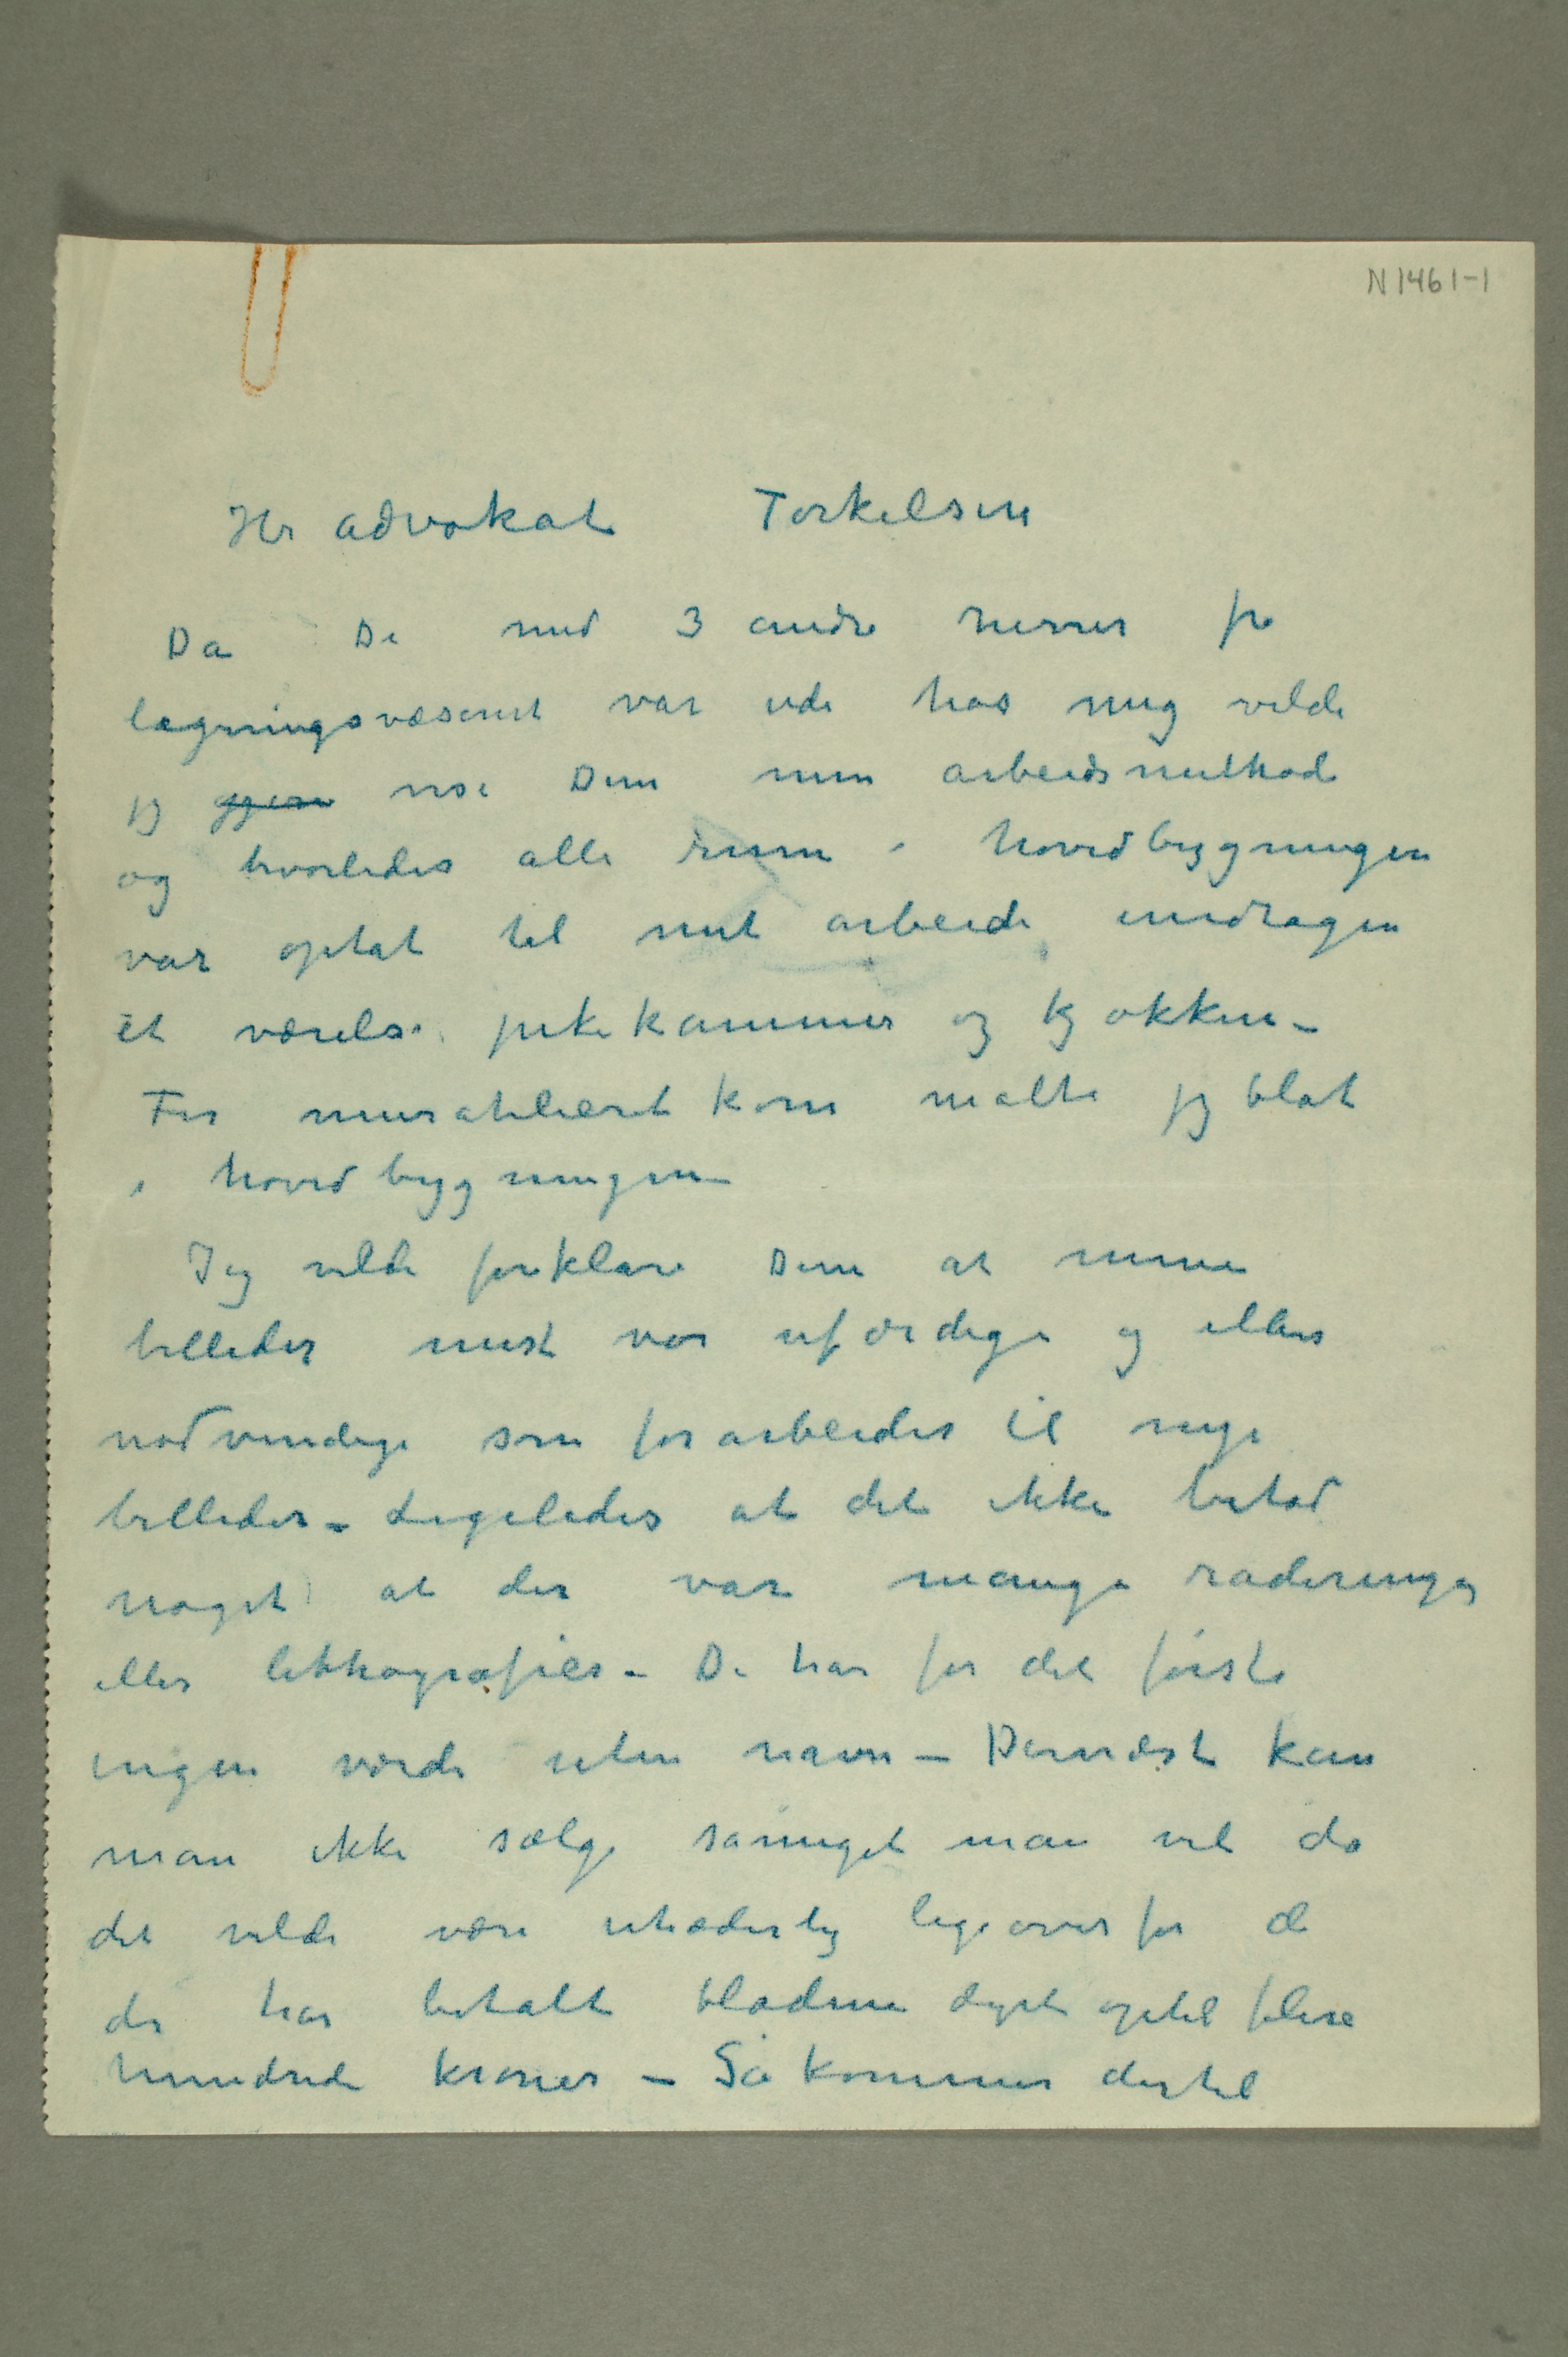 N 1461-1
Hr advokat Torkelsen
Da De med 3 andre herrer fra
ligningsvæsenet var ude hos mig vilde
jeg gjøre vise Dem min arbeidsmethode
og hvorledes alle rum i hovedbygningen
var optat til mit arbeide undtagen
et værelse, pikekammer og kjøkken –
Før muratelieret kom malte jeg blot
i hovedbygningen
Jeg vilde forklare Dem at mine
billeder mest var ufærdige og ellers
nødvendige som forarbeider til nye
billeder – Ligeledes at det ikke betød
noget at der var mange raderinger
eller lithografier – De har for det første
ingen værdi uten navn – Dernæst kan
man ikke sælge såmeget man vil da
det vilde være uhæderlig ligeoverfor de
der har betalt bladene dyrt optil flere
hundrede kroner – Så kommer dertil